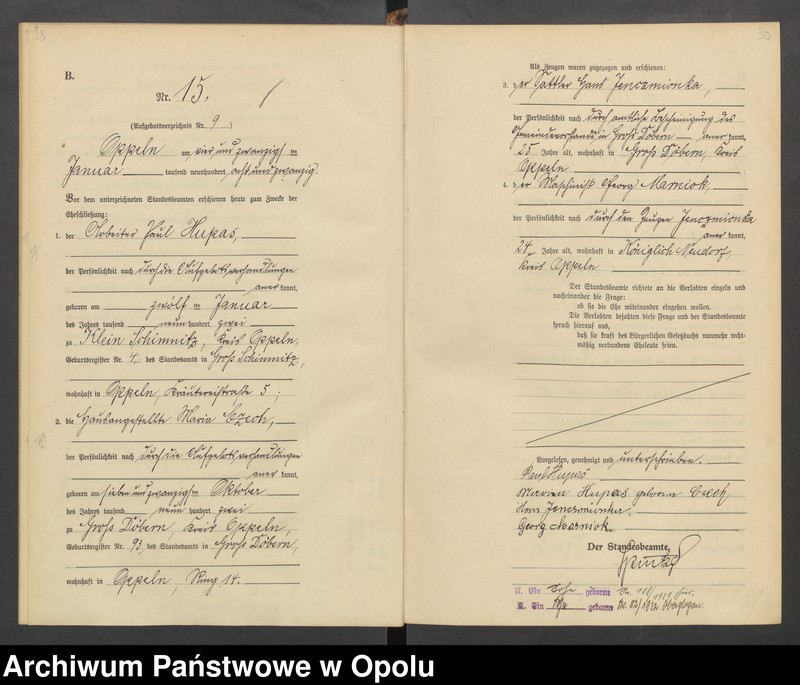 B.
Nr. 15.
(Aufgebotsverzeichnis Nr. 9)
Oppeln am vier und zwanzigsten
Januar tausend neunhundert acht und zwanzig.
Vor dem unterzeichneten Standesbeamten erschienen heute zum Zwecke der
Eheschließung:
1. der Arbeiter Paul Hupas,
der Persönlichkeit nach durch die Aufgebotsverhandlungen
anerkannt,
geboren am zwölften Januar
des Jahres tausend neun hundert zwei
zu Klein Schimnitz, Kreis Oppeln,
Geburtsregister Nr. 4 des Standesamts in Groß Schimnitz,
wohnhaft in Oppeln, Kräutereistraße 5;
2. die Hausangestellte Maria Czech,
der Persönlichkeit nach durch die Aufgebotsverhandlungen
anerkannt,
geboren am sieben und zwanzigsten Oktober
des Jahres tausend neun hundert zwei
zu Groß Döbern, Kreis Oppeln,
Geburtsregister Nr. 93 des Standesamts in Groß Döbern,
wohnhaft in Oppeln, Ring 14.
30
Als Zeugen waren zugezogen und erschienen:
3. der Sattler Hans Jenczmionka,
der Persönlichkeit nach durch amtliche Bescheinigung des
Gemeindevorstands in Groß Döbern anerkannt,
25 Jahre alt, wohnhaft in Groß Döbern, Kreis
Oppeln
4. der Maschinist Georg Marniok,
der Persönlichkeit nach durch den Zeugen Jenczmionka
anerkannt,
24 Jahre alt, wohnhaft in Königlich Neudorf,
Kreis Oppeln
Der Standesbeamte richtete an die Verlobten einzeln und
nacheinander die Frage:
ob sie die Ehe miteinander eingehen wollen.
Die Verlobten bejahten diese Frage und der Standesbeamte
sprach hierauf aus,
daß sie kraft des Bürgerlichen Gesetzbuchs nunmehr recht-
mäßig verbundene Eheleute seien.
Vorgelesen, genehmigt und unterschrieben.
Paul Hupas
Maria Hupas geborene Czech
Hans Jenczmionka
Georg Marniok.
Der Standesbeamte,
Ein Sohn geboren Nr.
Ein geboren Nr. 82/1932 Oberglogau.
Archiwum Państwowe w Opolu